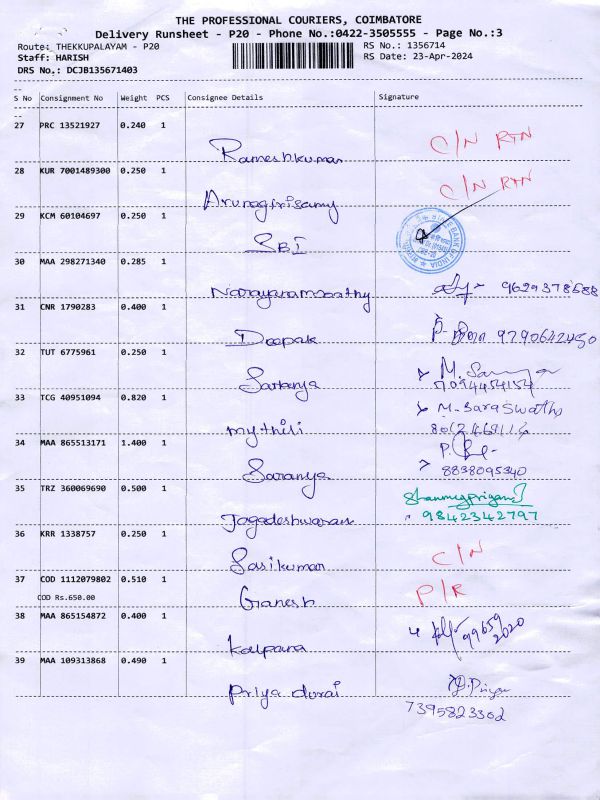 THE PROFESSIONAL COURIERS, COIMBATORE
Delivery Runsheet - P20 - Phone No.:0422-3505555 - Page No.:3
Route: THEKKUPALAYAM - P20 RS No.: 1356714
Staff: HARISH RS Date: 23-Apr-2024
DRS No.: DCJB135671403
S No Consignment No Weight PCS Consignee Details Signature
27 PRC 13521927 0.240 1
Rameshkumar C/N RTN
28 KUR 7001489300 0.250 1
Arunagirisamy C/N RTN
29 KCM 60104697 0.250 1
SBI
30 MAA 298271340 0.285 1
Narayanamoorthy 9629378688
31 CNR 1790283 0.400 1
Deepak 9790642450
32 TUT 6775961 0.250 1
Saranya M.
7094454154
33 TCG 40951094 0.820 1
Mythili M. Saraswathi
34 MAA 865513171 1.400 1
Saranya P.
8838095340
35 TRZ 360069690 0.500 1
Jagadeshwaran Shanmugpriyan
9842342797
36 KRR 1338757 0.250 1
Sasikumar C/N
37 COD 1112079802 0.510 1
COD Rs.650.00
Ganesh P/R
38 MAA 865154872 0.400 1
Kalpana 99659 2020
39 MAA 109313868 0.490 1
Priya durai
7395823302